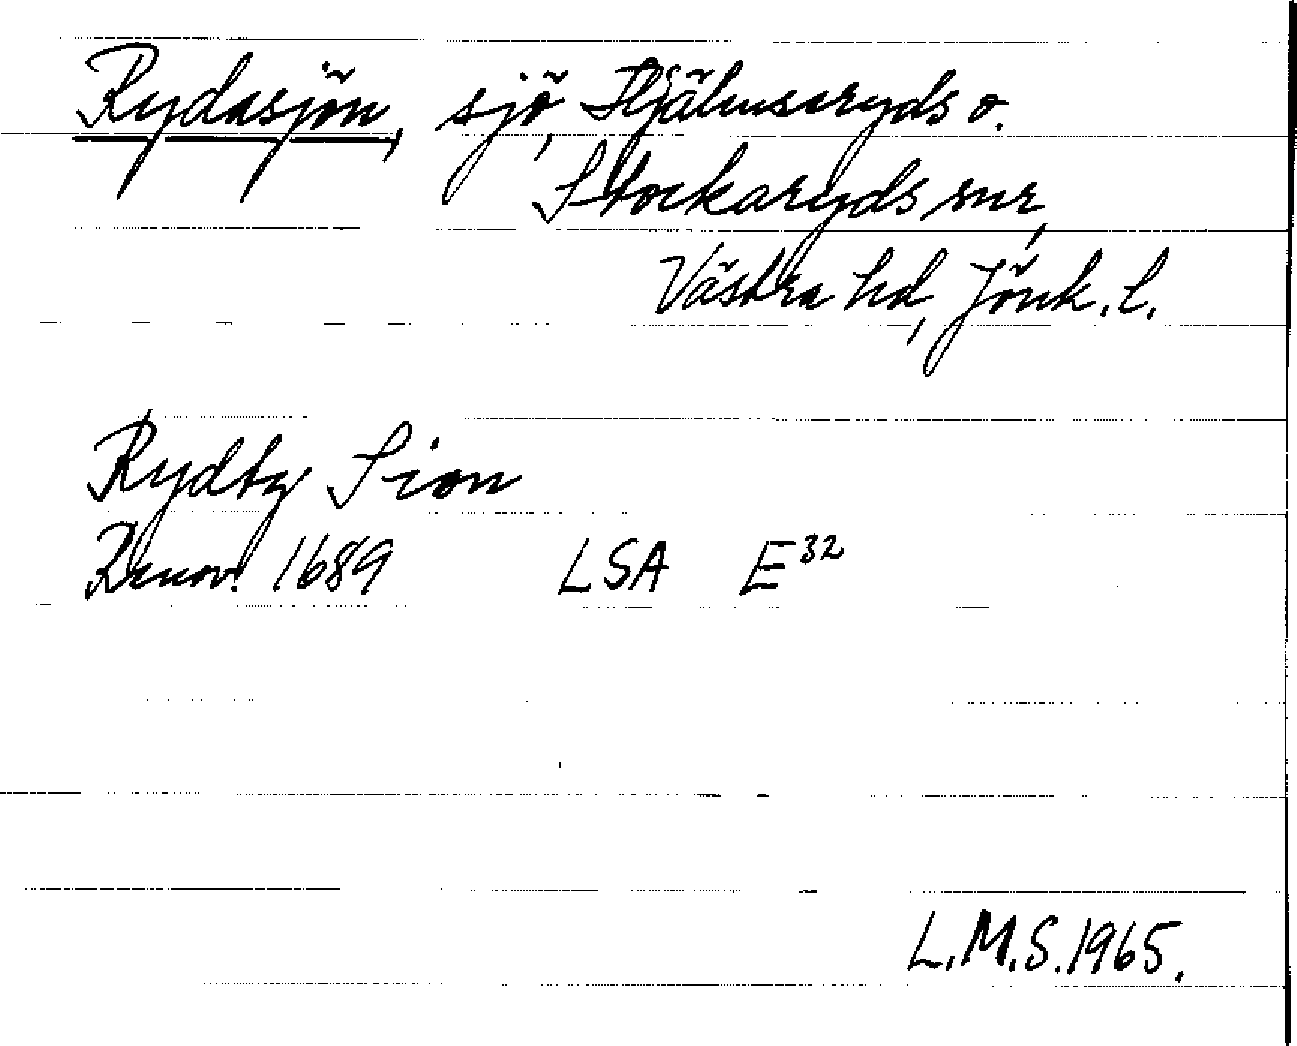 Rydasjön, sjö, Hjälmseryds o.
Stockaryds snr,
Västra hd, Jönk. l.
Rydby Sion
Renov. 1689 LSA E32
L.M.S. 1965.